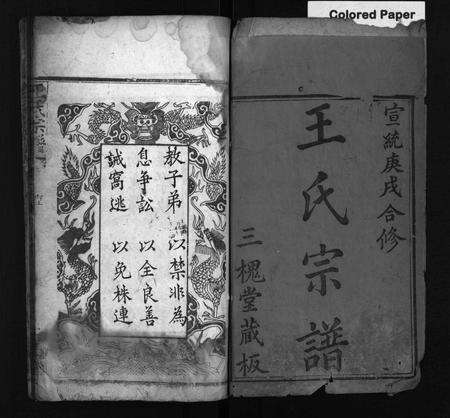 Colored Paper
宣統庚戌合修
王氏宗譜
三槐堂藏板
教子弟 以禁非為
息爭訟 以全良善
誡窩逃 以免株連